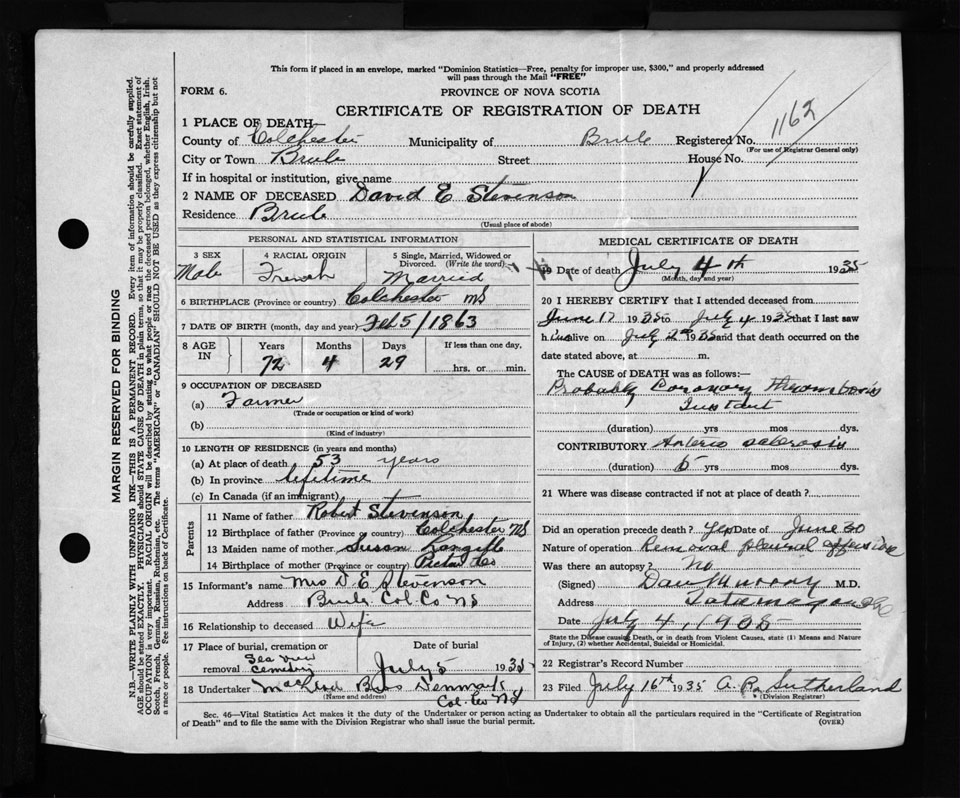 This form if placed in an envelope, marked "Dominion Statistics—Free, penalty for improper use, $300," and properly addressed
will pass through the Mail "FREE"
FORM 6.
PROVINCE OF NOVA SCOTIA
CERTIFICATE OF REGISTRATION OF DEATH
1162
1 PLACE OF DEATH—
County of Colchester Municipality of Brule Registered No.
(For use of Registrar General only)
City or Town Brule Street House No.
If in hospital or institution, give name
2 NAME OF DECEASED David E Stevenson
Residence Brule
(Usual place of abode)
PERSONAL AND STATISTICAL INFORMATION
3 SEX 4 RACIAL ORIGIN 5 Single, Married, Widowed or
Divorced. (Write the word)
Male French Married
6 BIRTHPLACE (Province or country) Colchester NS
7 DATE OF BIRTH (month, day and year) Feb 5/1863
8 AGE IN Years Months Days If less than one day,
72 4 29 hrs. or min.
9 OCCUPATION OF DECEASED
(a) Farmer
(Trade or occupation or kind of work)
(b)
(Kind of industry)
10 LENGTH OF RESIDENCE (in years and months)
(a) At place of death 53 years
(b) In province lifetime
(c) In Canada (if an immigrant)
Parents
11 Name of father Robert Stevenson
12 Birthplace of father (Province or country) Colchester NS
13 Maiden name of mother Susan Langille
14 Birthplace of mother (Province or country) Pictou Co
15 Informant's name Mrs D. E Stevenson
Address Brule Col. Co NS
16 Relationship to deceased Wife
17 Place of burial, cremation or Date of burial
removal Sea View Cemetery July 5 193
18 Undertaker Bros Denmark
(Name and address)
Col. Co NS
MEDICAL CERTIFICATE OF DEATH
19 Date of death July 4th 1935
(Month, day and year)
20 I HEREBY CERTIFY that I attended deceased from
June 17 1935 to July 4 1935 that I last saw
h im alive on July 2nd 1935 and that death occurred on the
date stated above, at m.
The CAUSE OF DEATH was as follows:—
Probably Coronary Thrombosis
Instant
(duration) yrs mos dys.
CONTRIBUTORY Arterio sclerosis
(duration) 5 yrs mos dys.
21 Where was disease contracted if not at place of death?
Did an operation precede death? Yes Date of June 30
Nature of operation Removal pleural effusion
Was there an autopsy? No
(Signed) Dan Murray M.D.
Address Tatamagouche
Date July 4, 1935
State the Disease causing Death, or in death from Violent Causes, state (1) Means and Nature
of Injury, (2) whether Accidental, Suicidal or Homicidal.
22 Registrar's Record Number
23 Filed July 16th 1935 A. R. Sutherland
(Division Registrar)
Sec. 46—Vital Statistics Act makes it the duty of the Undertaker or person acting as Undertaker to obtain all the particulars required in the "Certificate of Registration
of Death" and to file the same with the Division Registrar who shall issue the burial permit. (OVER)
MARGIN RESERVED FOR BINDING
N.B.—WRITE PLAINLY WITH UNFADING INK—THIS IS A PERMANENT RECORD. Every item of information should be carefully supplied.
AGE should be stated EXACTLY. PHYSICIANS should STATE CAUSE OF DEATH in plain terms, so that it may be properly classified. Exact statement of
OCCUPATION is very important. RACIAL ORIGIN will be described by stating to what people or race the deceased person belonged, whether English, Irish,
Scotch, French, German, Russian, Ruthenian, etc. The terms "AMERICAN" or "CANADIAN" SHOULD NOT BE USED as they express citizenship but not
a race or people. See instructions on back of Certificate.